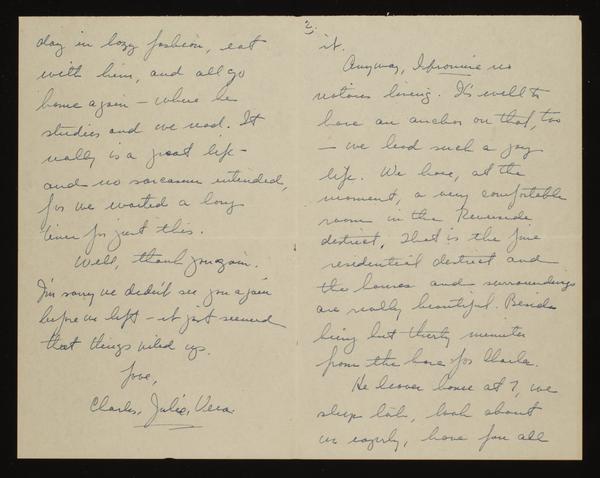 2.
it.
Anyway, I promise no
notions living. It's well to
have an anchor on that, too
— we lead such a gay
life. We have, at the
moment, a very comfortable
room in the Riverside
district. That is the fine
residential district and
the houses and surroundings
are really beautiful. Besides
being but thirty minutes
from the base for Charles.
He leaves home at 7, we
sleep late, look about
us eagerly, have for all
day in lazy fashion, eat
with him, and all go
home again — where he
studies and we read. It
really is a great life —
and no sarcasm intended,
for we waited a long
time for just this.
Well, thank you again.
I'm sorry we didn't see you again
before we left — it just seemed
that things piled up.
Love,
Charles, Julie, Vera.